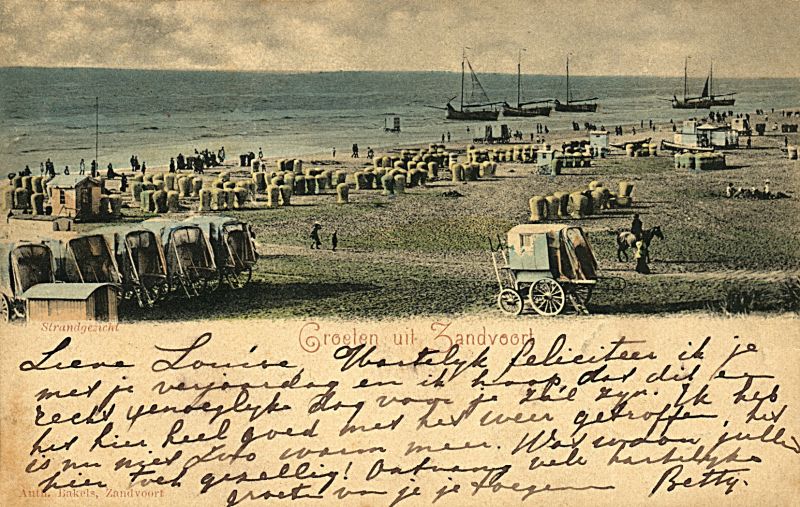 Strandgezicht
Groeten uit Zandvoort
Lieve Louise, Hartelyk feliciteer ik je
met je verjaardag en ik hoop dat dit een
recht genoeglyke dag voor je zal zyn. Ik heb
het hier heel goed met het weer getroffen, het
is nu niet zoo warm meer. Was waren jullie
hier toch gezellig! Ontvang vele hartelyke
groeten van je je toegen Betty.
Auth. Bakels, Zandvoort